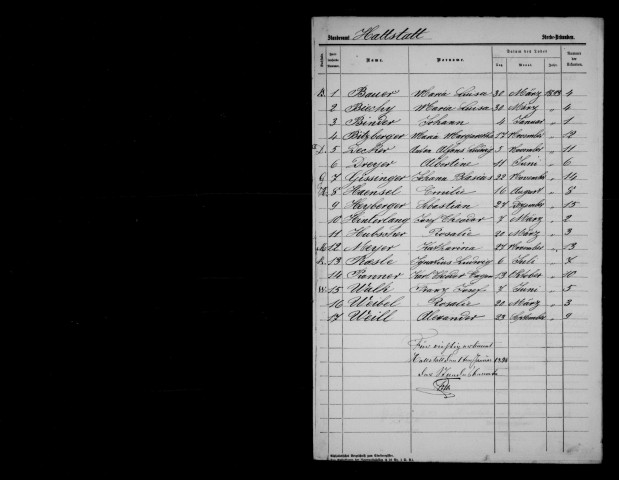 Standesamt Hattstatt Sterbe-Urkunden.
Name. Vorname. Datum des Todes Nummer der Urkunden.
Tag. Monat. Jahr.
B. 1 Bauer Maria Luisa 30 März 1893 4
2 Biechy Maria Luisa 30 März " 4
3 Binder Johann 4 Januar " 1
4 Bitzberger Maria Margaretha 17 November " 12
5 Lecher Anton Alfons 3 November " 11
6 Dreyer Albertine 11 Juni " 6
G 7 Gissinger Johann Blasius 22 November " 14
H. 8 Haensel Emilie 16 August " 8
9 Heyberger Sebastian 27 Dezember " 15
10 Hinterlang Josef Theodor 7 März " 2
11 Hubscher Rosalie 20 März " 3
M 12 Meyer Katharina 22 November " 13
R. 13 Rasle Ignatius Ludwig 6 Juli " 7
14 Ranner Karl Theodor Eugen 13 Oktober " 10
W. 15 Walk Franz Josef 7 Juni " 5
16 Weibel Rosalie 20 März " 3
17 Weill Alexander 29 September " 9
Für richtig erkannt
Hattstatt den 1ten Januar 1894
Der Standesbeamte